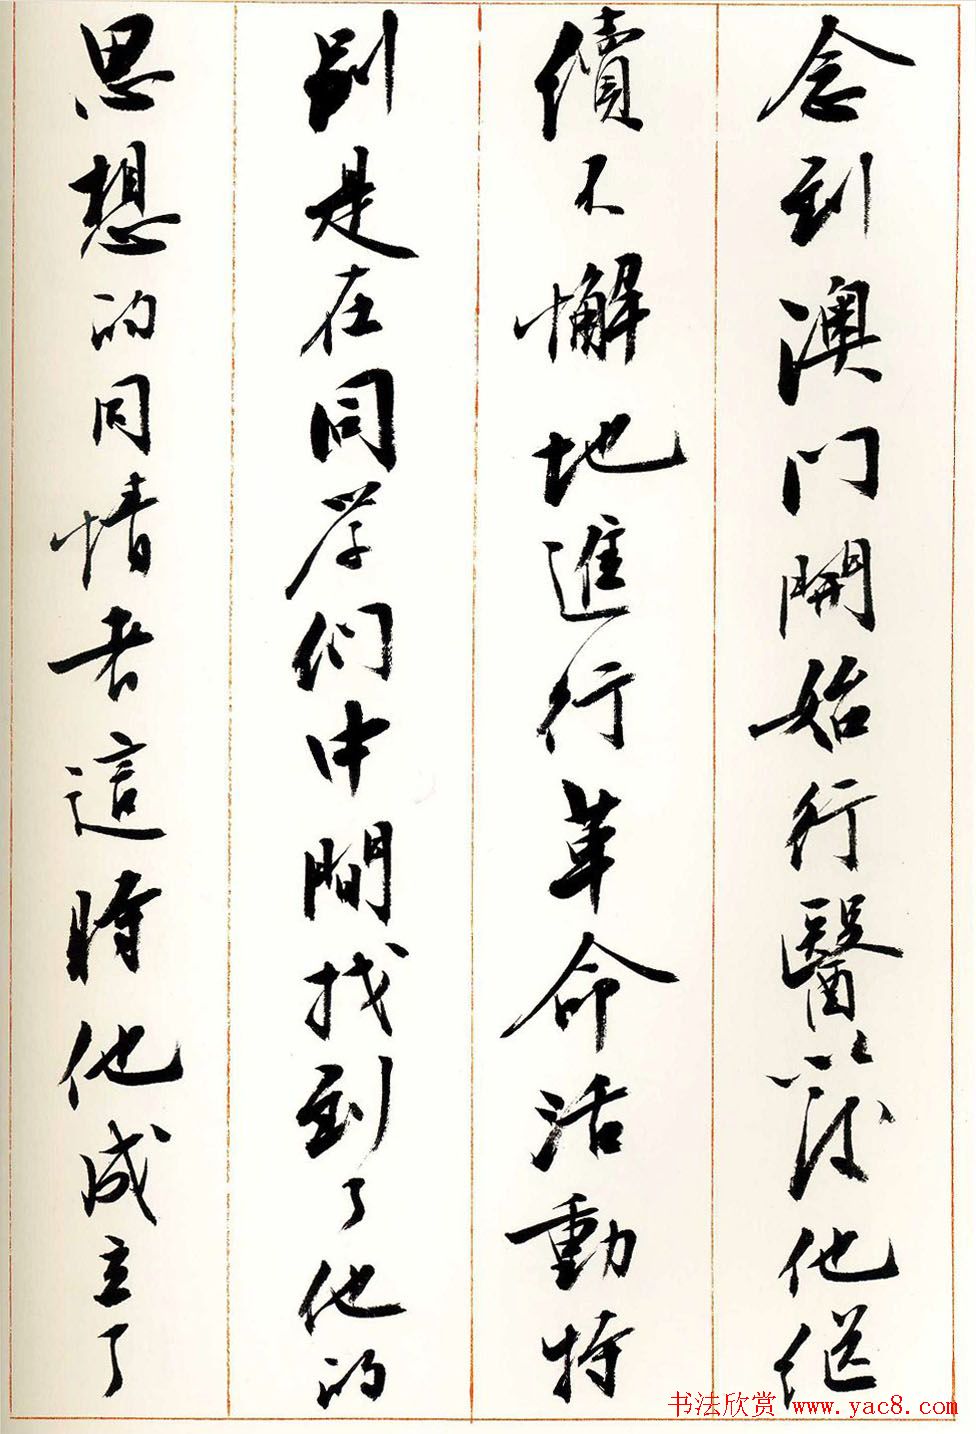 念到澳门開始行醫以後他继
續不懈地進行革命活動特
别是在同学们中間找到了他的
思想的同情者這時他成立了
书法欣赏 www.yac8.com